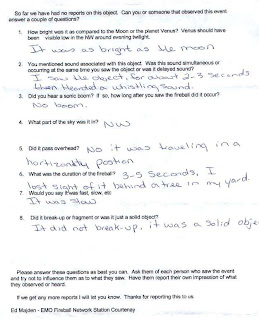 So far we have had no reports on this object. Can you or someone that observed this event
answer a couple of questions?
1. How bright was it as compared to the Moon or the planet Venus? Venus should have
been visible low in the NW around evening twilight.
It was as bright as the moon
2. You mentioned sound associated with this object. Was this sound simultaneous or
occurring at the same time you saw the object or was it delayed sound?
I saw the object, for about 2-3 seconds
then Hearded a whistling sound.
3. Did you hear a sonic boom? If so, how long after you saw the fireball did it occur?
No boom.
4. What part of the sky was it in?
NW
5. Did it pass overhead?
No it was traveling in a
hortizontly postion
6. What was the duration of the fireball?
3-5 seconds, I
lost sight of it behind a tree in my yard.
7. Would you say it was fast, slow, etc
It was slow
8. Did it break-up or fragment or was it just a solid object?
It did not break-up, it was a solid obje
Please answer these questions as best you can. Ask them of each person who saw the event
and try not to influence them as to what they saw. Have them report their own impression of what
they observed or heard.
If we get any more reports I will let you know. Thanks for reporting this to us
Ed Majden - EMO Fireball Network Station Courtenay